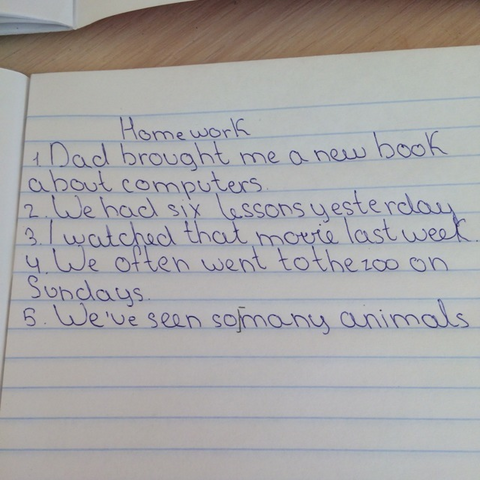 Homework
1. Dad brought me a new book
about computers.
2. We had six lessons yesterday
3. I watched that movie last week.
4. We often went to the zoo on
Sundays.
5. We've seen so many animals